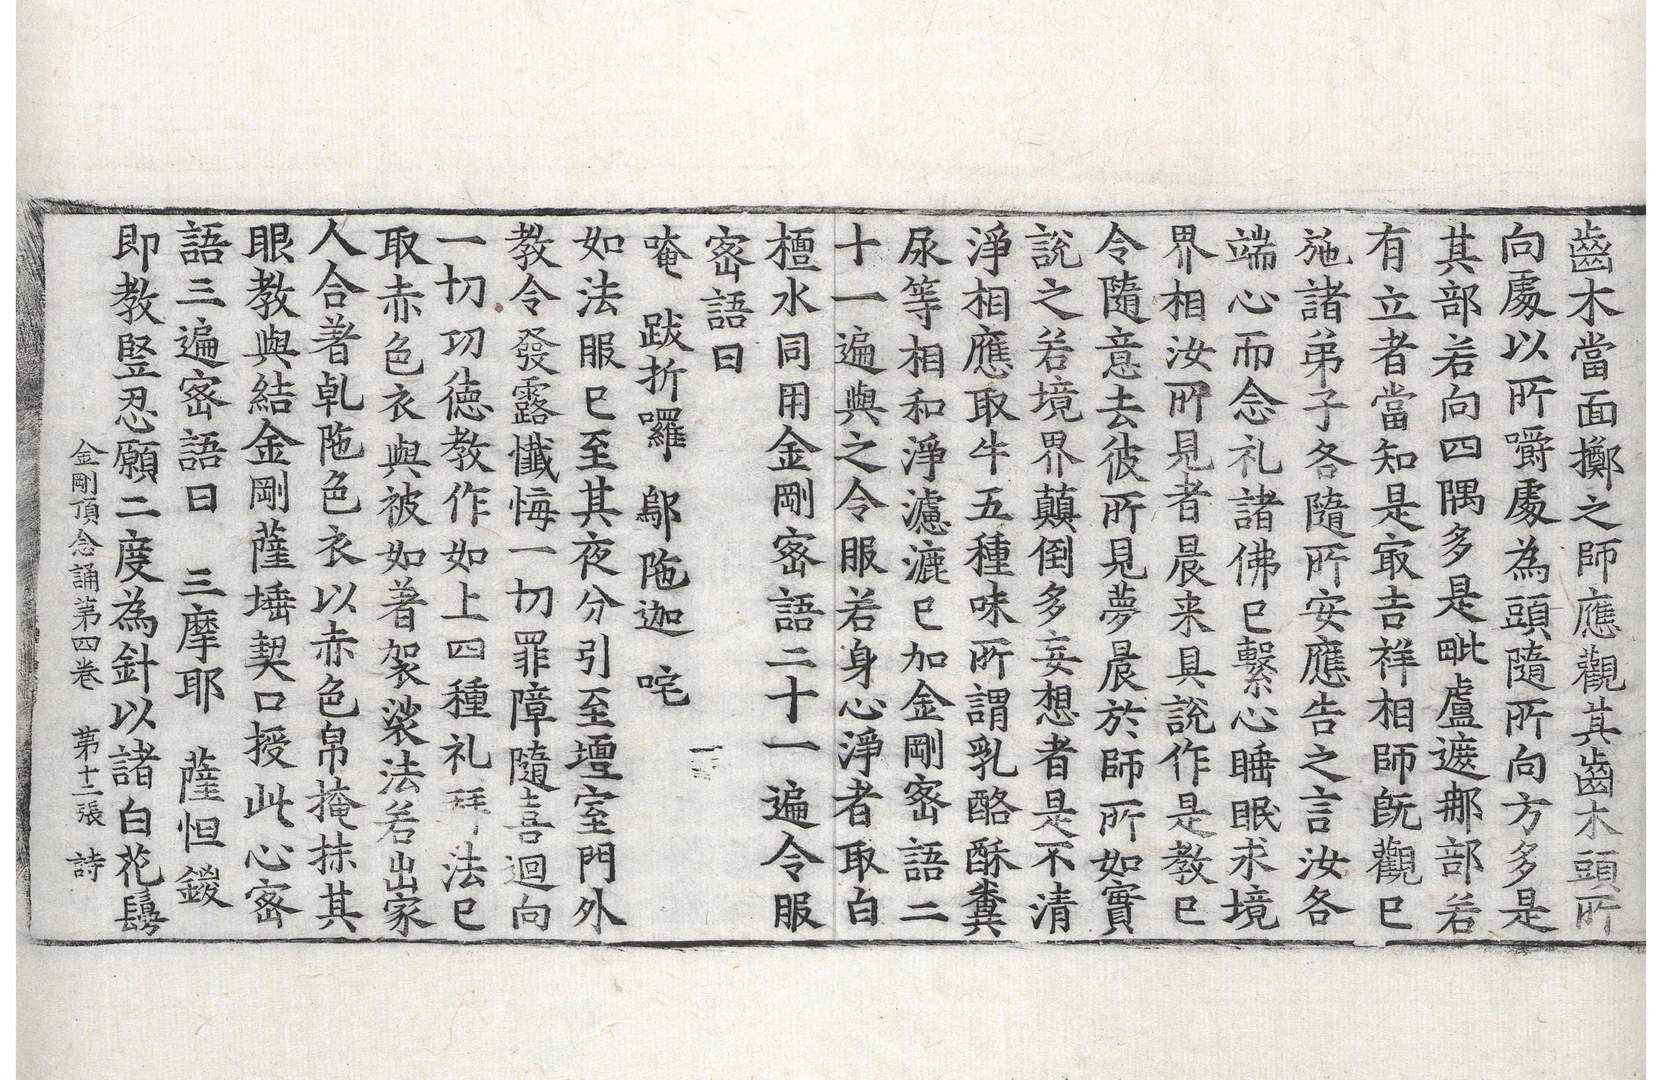 齒木當面擲之師應觀其齒木頭所
向處以所嚼處為頭隨所向方多是
其部若向四隅多是毗盧遮那部若
有立者當知是㝡吉祥相師旣觀已
施諸弟子各隨所安應告之言汝各
端心而念礼諸佛已繫心睡眠求境
界相汝所見者晨来具說作是教已
令隨意去彼所見夢晨於師所如實
說之若境界顛倒多妄想者是不清
淨相應取牛五種味所謂乳酪酥糞
尿等相和淨濾漉已加金剛密語二
十一遍與之令服若身心淨者取白
檀水同用金剛密語二十一遍令服
密語曰
唵　跋折囉　鄔陁迦　咤
如法服已至其夜分引至壇室門外
教令發露懺悔一切罪障隨喜迴向
一切功德教作如上四種礼拜法已
取赤色衣與被如著袈裟法若出家
人合著乹陁色衣以赤色帛掩抹其
眼教與結金剛薩埵契口授此心密
語三遍密語曰　三摩耶　薩怛鍐
即教竪忍願二度為針以諸白花鬘
金剛頂念誦第四卷　第十二張　詩